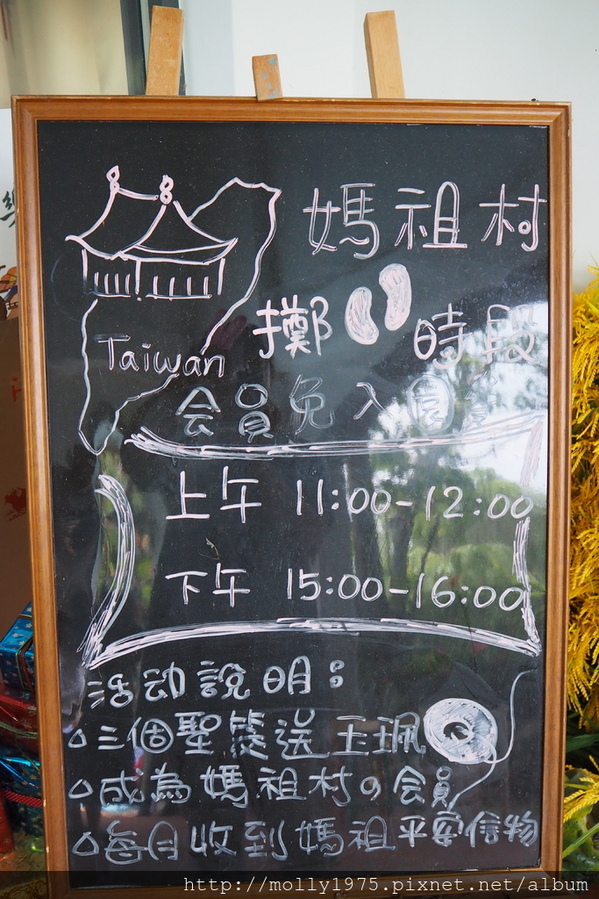 媽祖村
擲 時段
Taiwan
会員免入園
上午 11:00-12:00
下午 15:00-16:00
活动說明:
△三個聖筊送玉珮
△成為媽祖村の会員
△每月收到媽祖平安信物
http://molly1975.pixnet.net/album